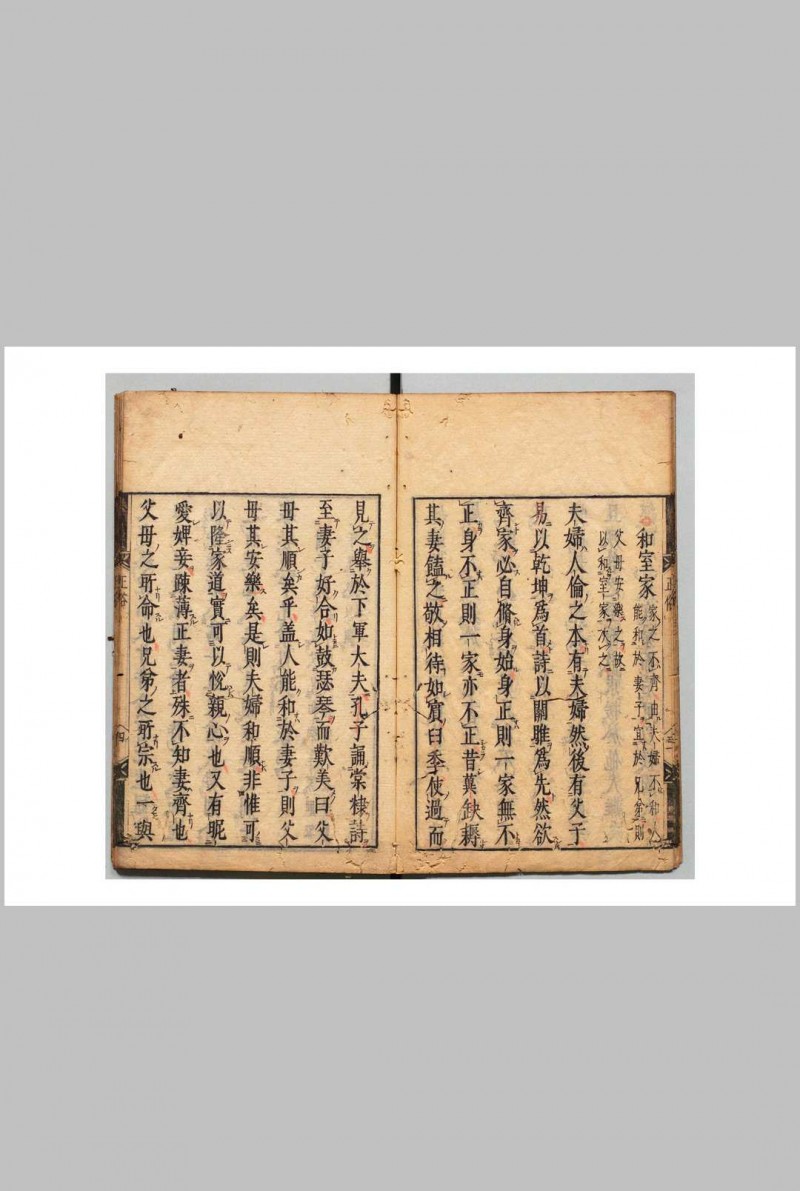 和室家
家之不齊由夫婦不和人
能和於妻子宜於兄弟則
父母安樂之故
以和室家次之
夫婦人倫之本有夫婦然後有父子
易以乾坤爲首詩以關雎爲先然欲
齊家必自脩身始身正則一家無不
正身不正則一家亦不正昔冀缺耨
其妻饁之敬相待如賓臼季使過而
正俗
三
見之舉於下軍大夫孔子誦棠棣詩
至妻子好合如鼓瑟琴而歎美曰父
母其順矣乎盖人能和於妻子則父
母其安樂矣是則夫婦和順非惟可
以隆家道實可以悅親心也又有昵
愛婢妾疎薄正妻者殊不知妻齊也
父母之所命也兄弟之所宗也一與
正俗
四